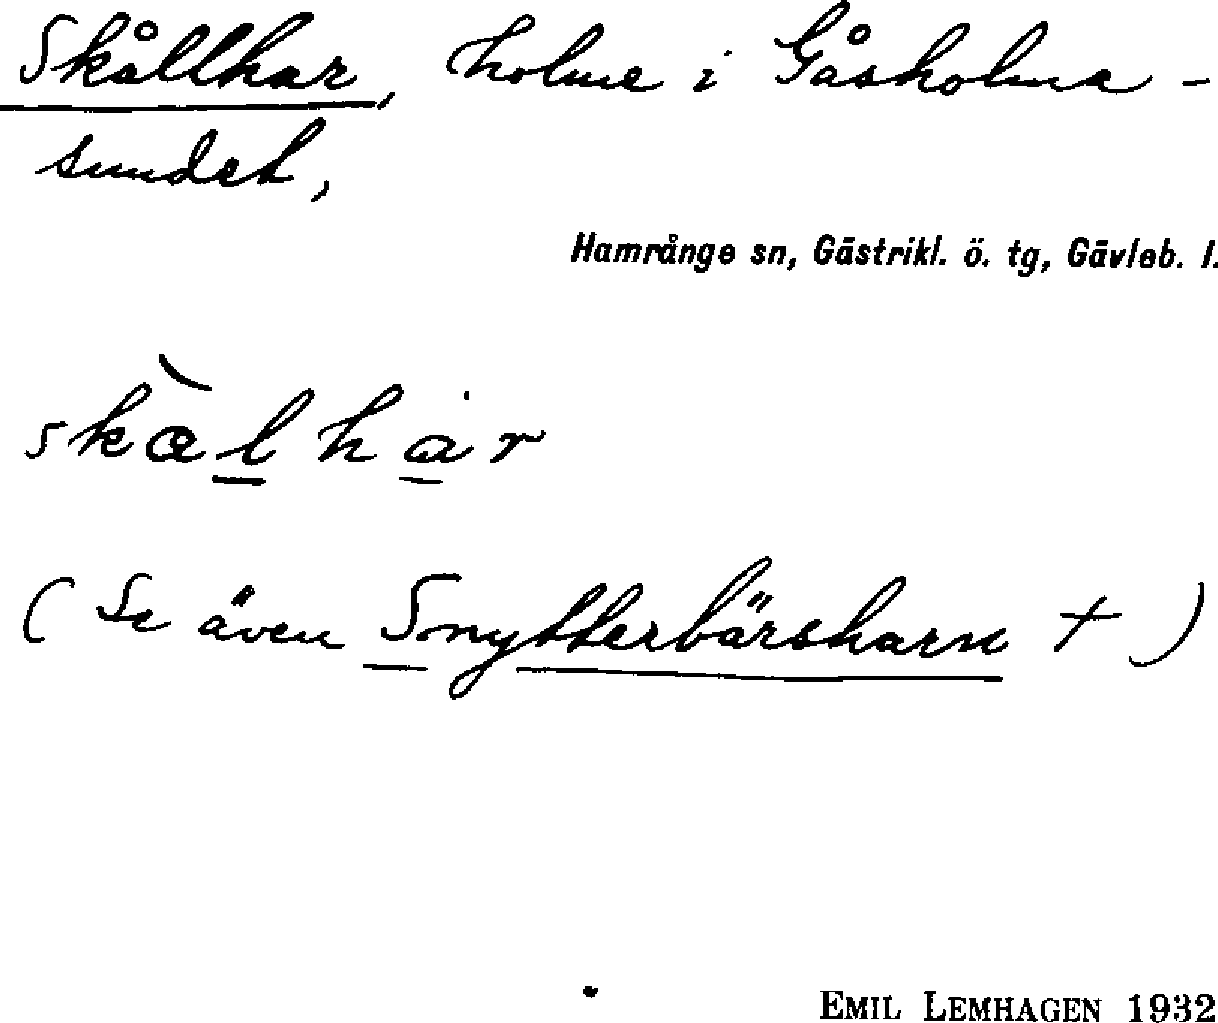 Skållhar, holme i Gåsholma-
sundet,
Hamrånge sn, Gästrikl. ö. tg, Gävleb. l.
skàlhar
(Se även Snytterbärsharn +)
EMIL LEMHAGEN 1932